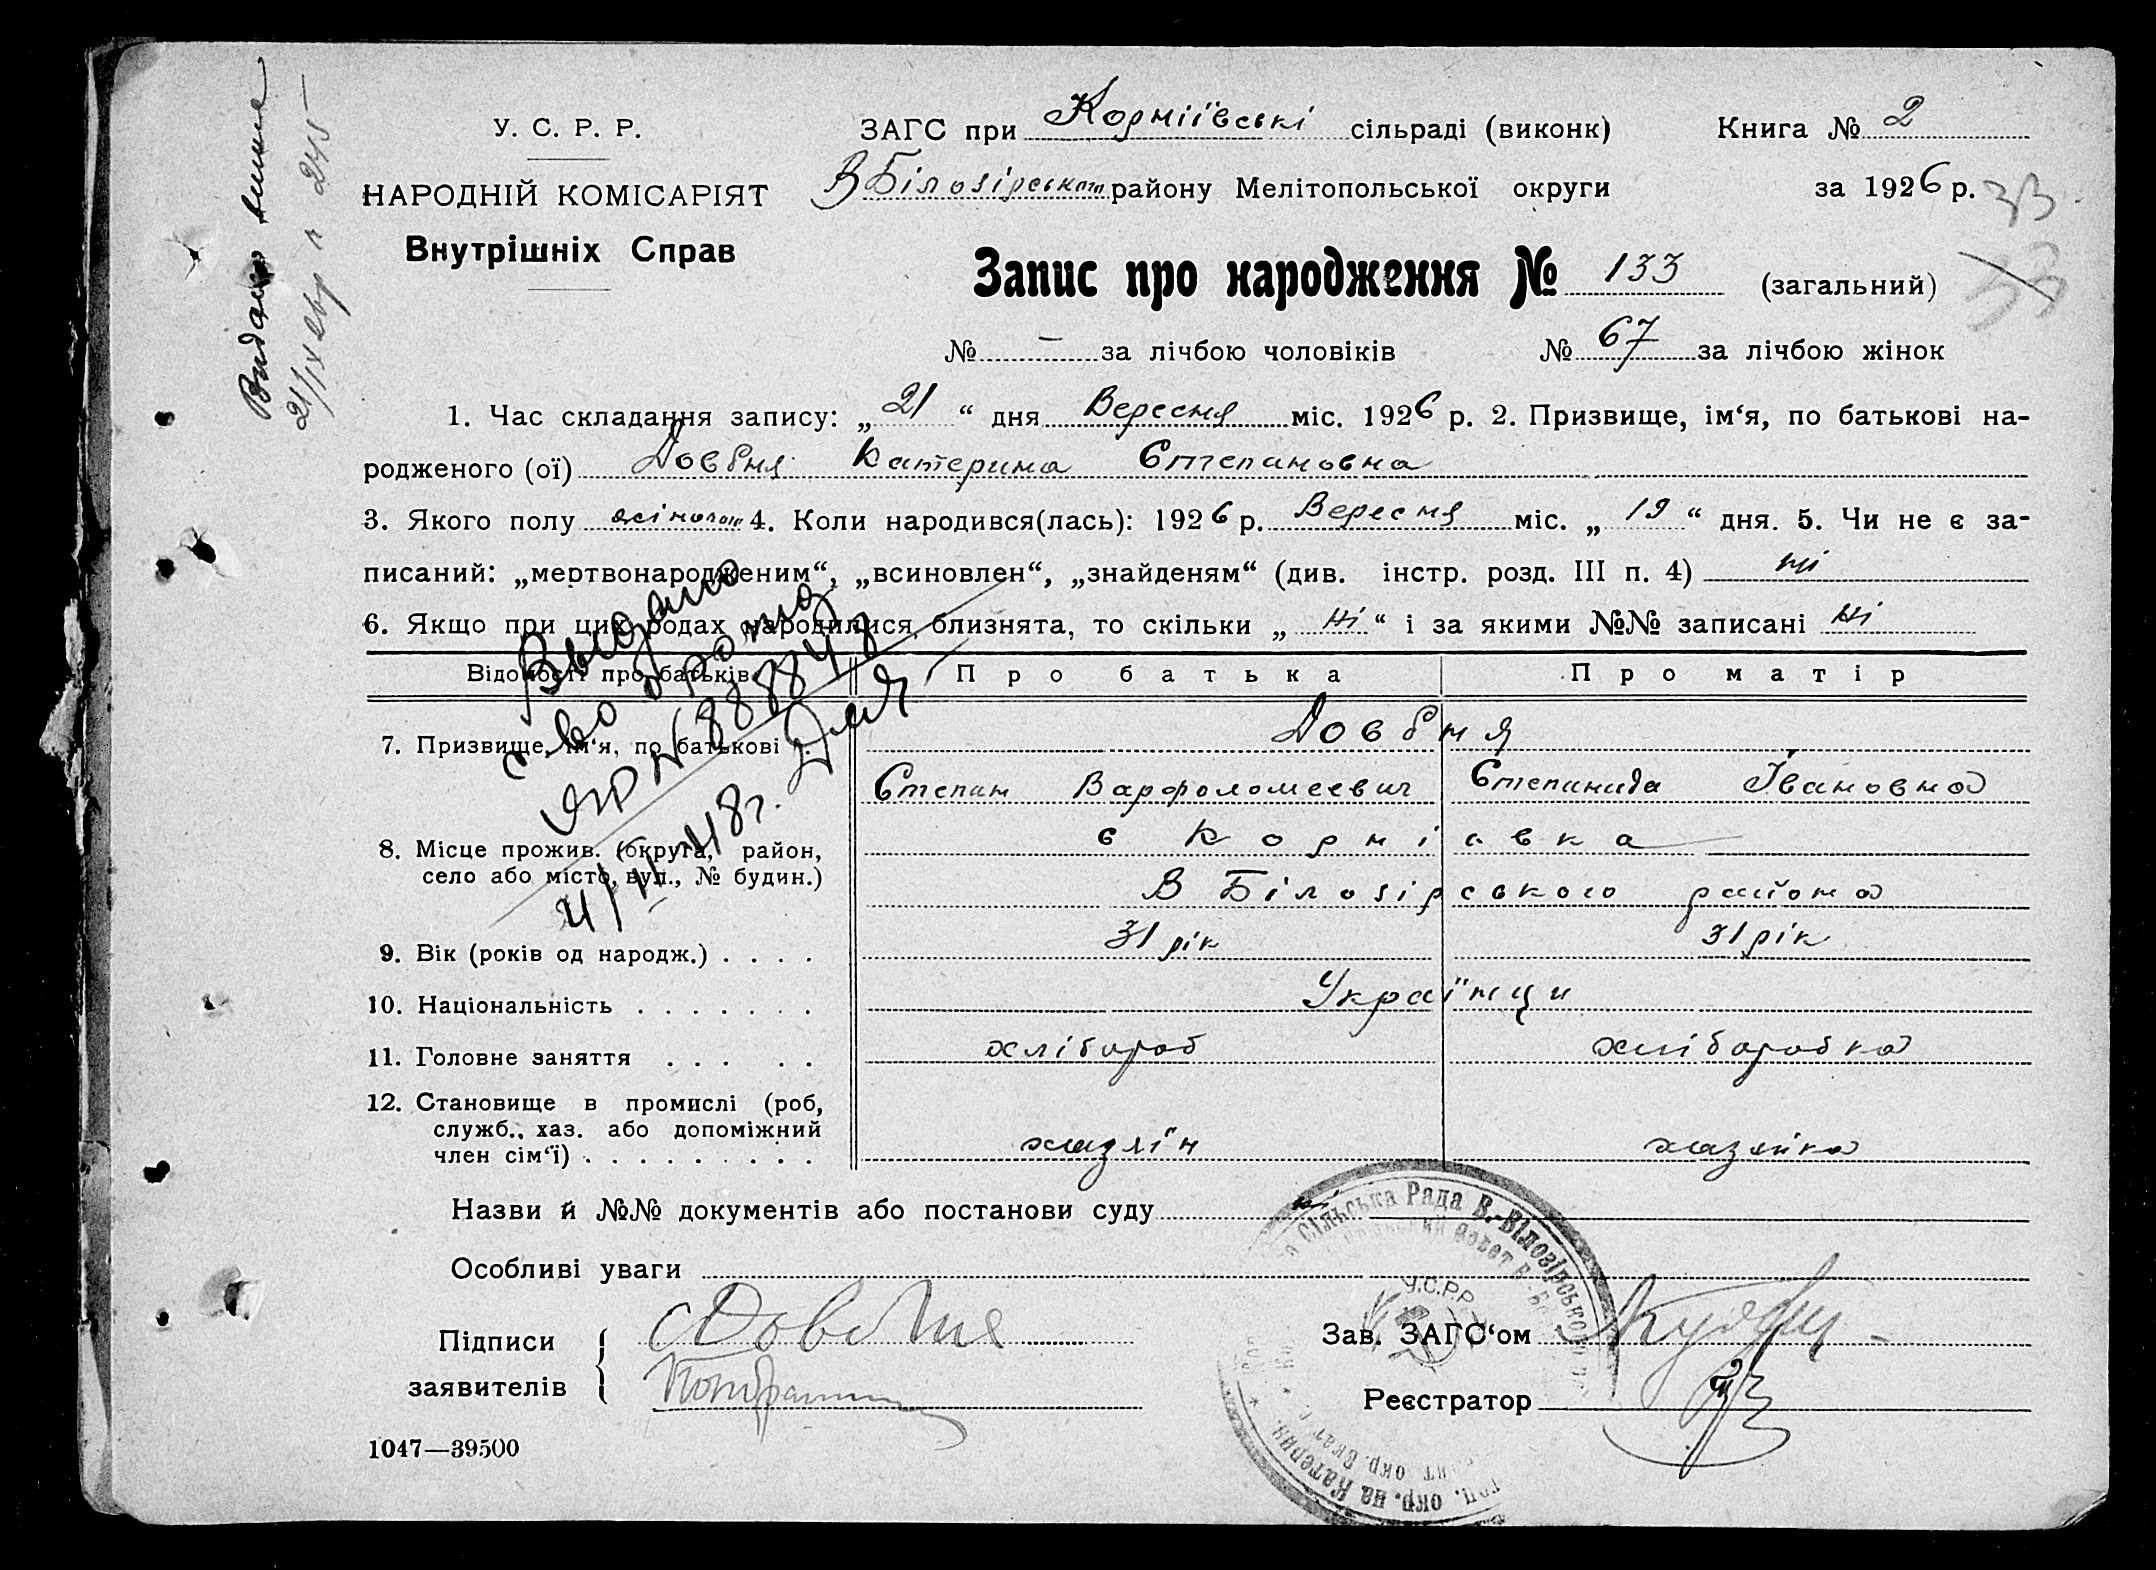 У. С. Р. Р.
НАРОДНІЙ КОМІСАРІЯТ
Внутрішніх Справ
ЗАГС при Корніївські сільраді (виконк) Книга № 2
В Білозірського району Мелітопольської округи за 1926 р.
33
Запис про народження № 133 (загальний)
№ — за лічбою чоловіків № 67 за лічбою жінок
1. Час складання запису: „21“ дня Вересня міс. 1926 р. 2. Призвище, ім‘я, по батькові на-
родженого (ої) Довбня Катерина Степановна
3. Якого полу жіночого 4. Коли народився(лась): 1926 р. Вересня міс. „19“ дня. 5. Чи не є за-
писаний: „мертвонародженим“, „всиновлен“, „знайденям“ (див. інстр. розд. III п. 4) ні
6. Якщо при цих родах народилися близнята, то скільки „ні“ і за якими №№ записані ні
Відомості про батьків Про батька Про матір
7. Призвище, ім‘я, по батькові Довбня
Степан Варфоломеевич Степанида Івановна
8. Місце прожив. (округа, район, с Корніівка
село або місто, вул., № будин.) В Білозірського района
9. Вік (років од народж.) . . . . 31 рік 31 рік
10. Національність . . . . . . . Українци
11. Головне заняття . . . . . хлібороб хліборобка
12. Становище в промислі (роб,
служб., хаз. або допоміжний
член сім‘ї) . . . . . . . . . хазяїн хазяйка
Назви й №№ документів або постанови суду ні
Особливі уваги
Підписи
заявителів
Довбня
Зав. ЗАГС‘ом
Реєстратор
1047—39500
Выдано
с во о рожд
ЯР № 888848
4/VI-48 г.
Сільська Рада В.-Білозірського
У.С.Р.Р.